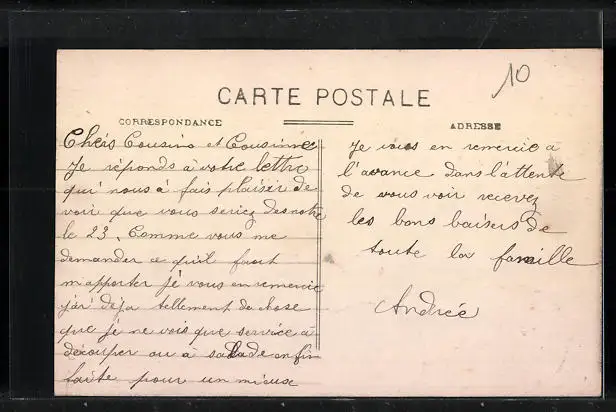 10
CARTE POSTALE
CORRESPONDANCE
Chérs Cousins et Cousinne
Je réponds à votre lettre
qui nous à fais plaisir de
voir que vous seriez des notre
le 23. Comme vous me
demander ce qu'il faut
m'apporter je vous en remercie
j'ai déja tellement de chose
que je ne vois que service à
découper ou à salade enfin
faite pour un mieuse
ADRESSE
Je vous en remercie à
l'avance dans l'attente
de vous voir recevez
les bons baisers de
toute la famille
Andrée